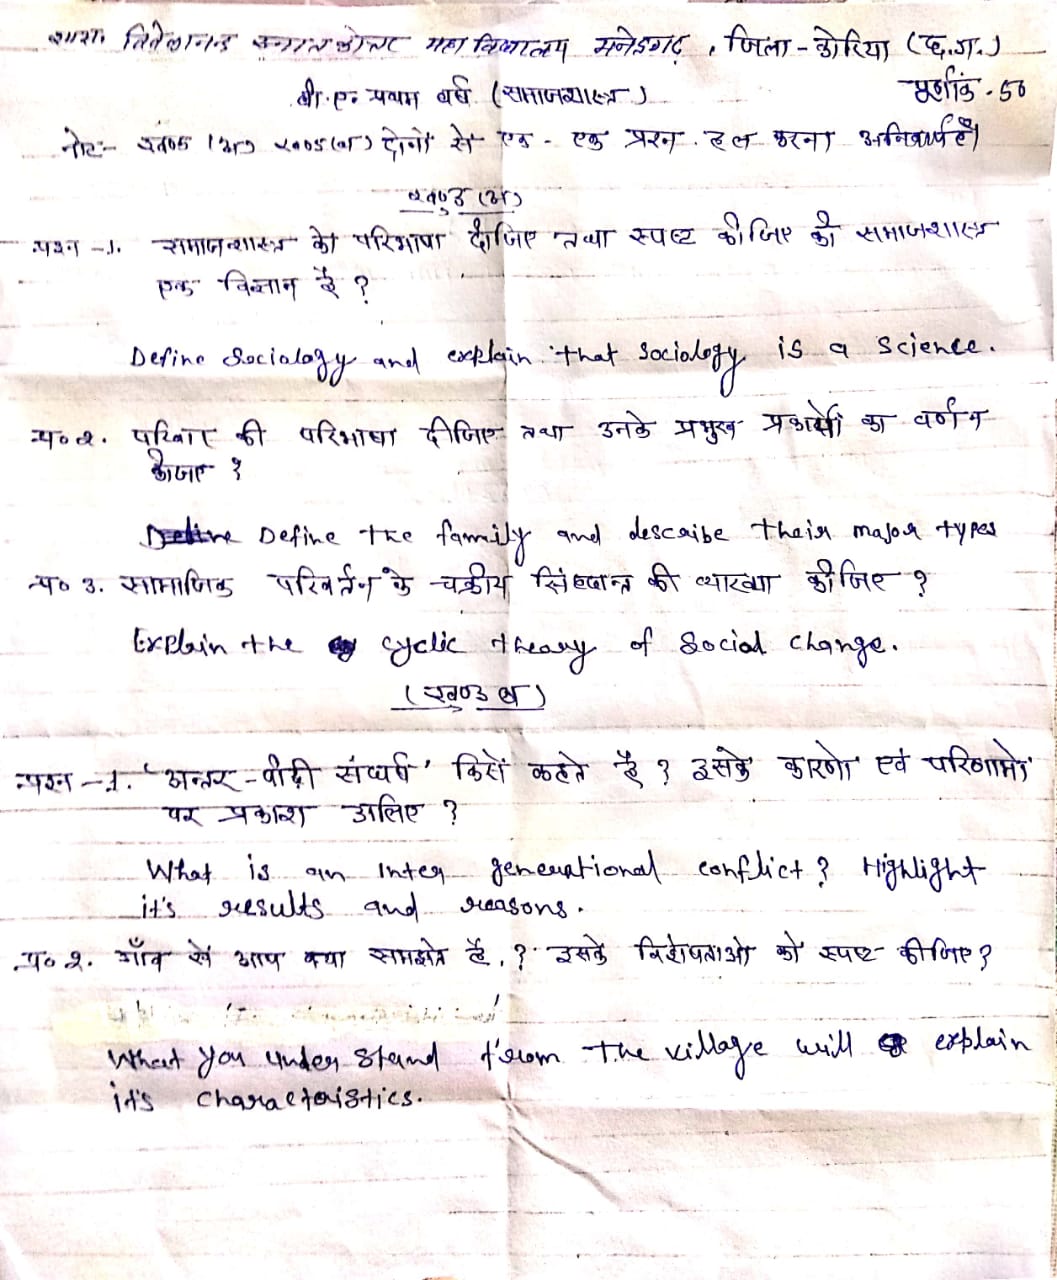 शास. विवेकानन्द स्नातकोत्तर महाविद्यालय मनेन्द्रगढ़, जिला-कोरिया (छ.ग.)
बी.ए. प्रथम वर्ष (समाजशास्त्र)
पूर्णांक-50
नोट:- खण्ड (अ) खण्ड(ब) दोनों से एक-एक प्रश्न हल करना अनिवार्य है।
खण्ड (अ)
प्रश्न-1. समाजशास्त्र की परिभाषा दीजिए तथा स्पष्ट कीजिए की समाजशास्त्र
एक विज्ञान है ?
Define Sociology and explain that Sociology is a science.
प्र० 2. परिवार की परिभाषा दीजिए तथा उनके प्रमुख प्रकारों का वर्णन
कीजिए ?
Define the family and describe their major types
प्र० 3. सामाजिक परिवर्तन के चक्रीय सिद्धान्त की व्याख्या कीजिए ?
Explain the cyclic theory of Social Change.
(खण्ड ब)
प्रश्न-1. 'अन्तर-पीढ़ी संघर्ष' किसे कहते है ? इसके कारणों एवं परिणामों
पर प्रकाश डालिए ?
What is an Inter generational conflict? Highlight
it's results and reasons.
प्र० 2. गाँव से आप क्या समझते है. ? इसके विशेषताओं को स्पष्ट कीजिए ?
What you under stand from the village will explain
it's characteristics.